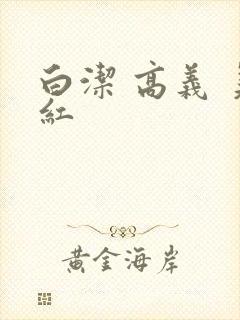 白潔 高義
紅
黃金海岸